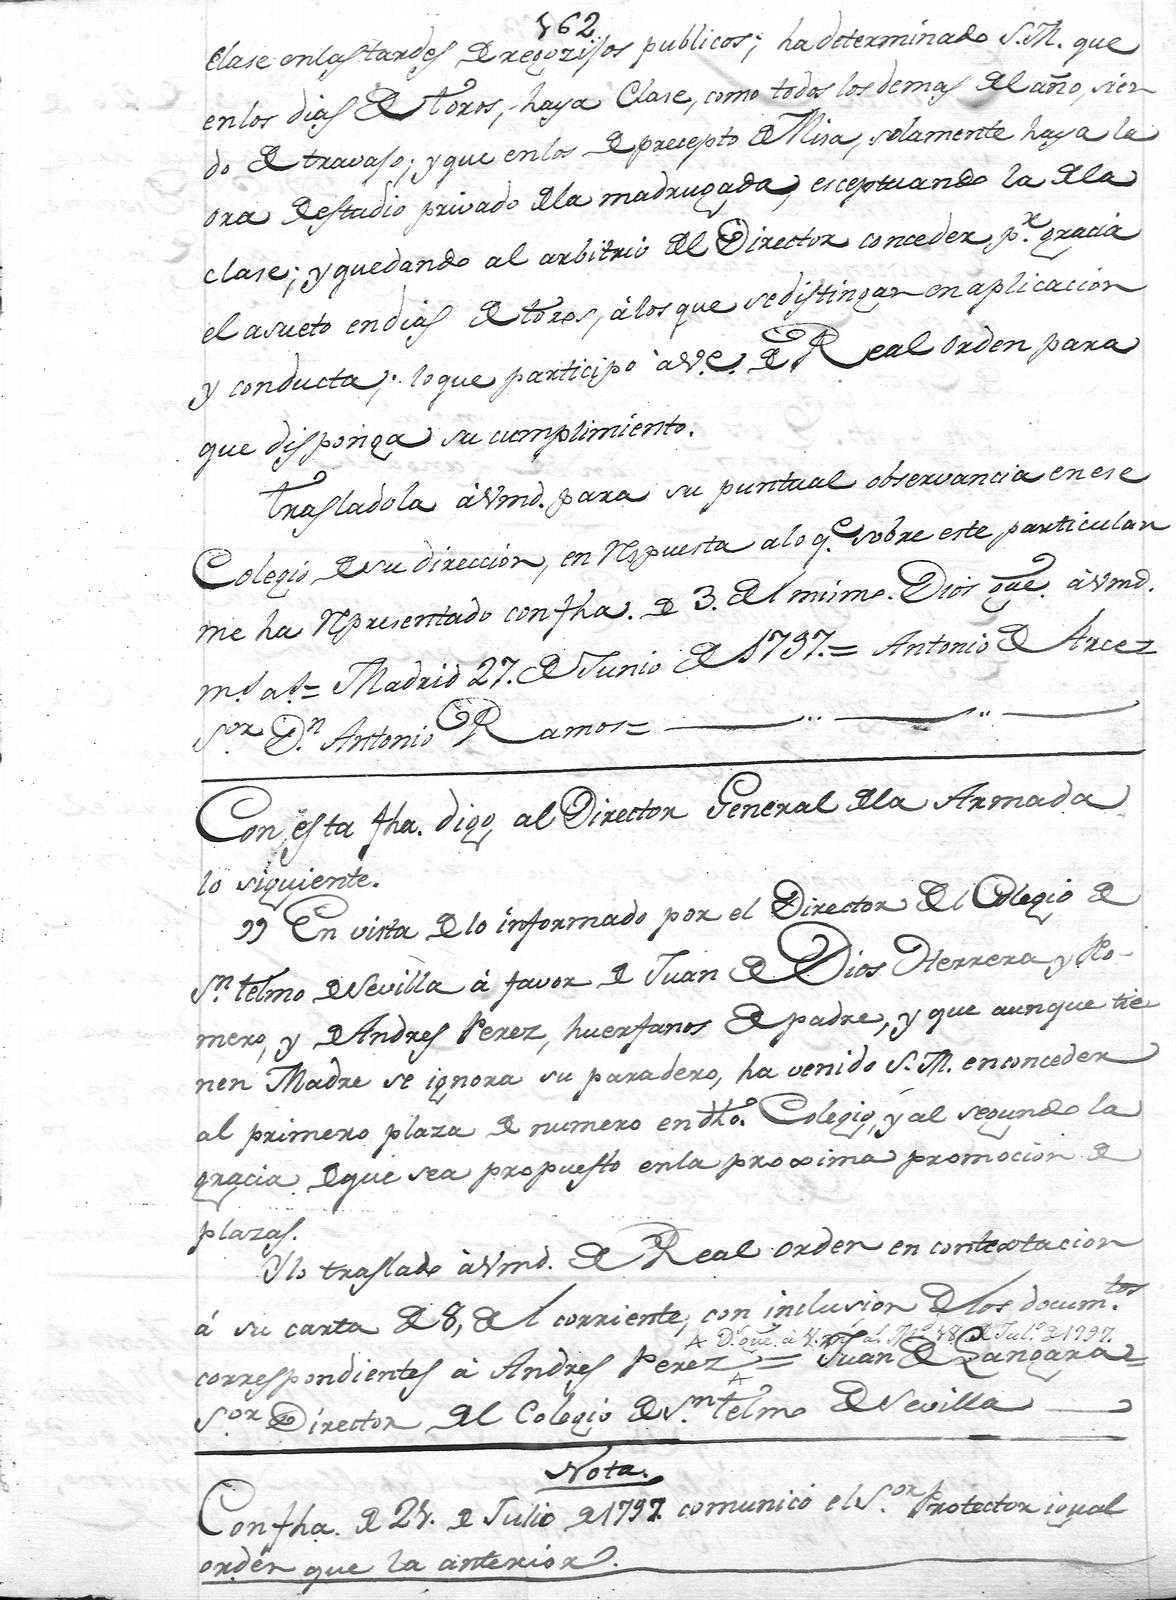 162
Clase en las tardes de regozijos publicos; ha determinado S.M. que
en los dias de toros, haya Clase, como todos los demas del año, sien
do de travajo; y que en los de precepto de Misa, solamente haya la
ora de estudio privado de la madrugada, esceptuando la de la
clase; y quedando al arbitrio del Director conceder p.r gracia
el asueto en dias de toros, á los que se distingan en aplicacion
y conducta; lo que participo á V.E. de Real orden para
que disponga su cumplimiento.
Trasladola á Vmd. para su puntual observancia en ese
Colegio de su direccion, en respuesta a lo q.e sobre este particular
me ha representado con fha. de 3. del mismo. Dios gue. á Vmd.
m.s a.s = Madrid 27. de Junio de 1797. = Antonio de Arce =
S.or D.n Antonio Ramos =
Con esta fha. digo al Director General de la Armada
lo siguiente.
"En vista de lo informado por el Director del Colegio de
S.n Telmo de Sevilla á favor de Juan de Dios Herrera y Ro-
mero, y de Andres Perez, huerfanos de padre, y que aunque tie
nen Madre se ignora su paradero, ha venido S.M. en conceder
al primero plaza de numero en dho. Colegio, y al segundo la
gracia de que sea propuesto en la proxima promocion de
plazas.
Y lo traslado á Vmd. de Real orden en contextacion
á su carta de 8, del corriente, con inclusion de los docum.tos
A D.s gue. á V. m.s a.s M.d 18 de Jul.o de 1797.
correspondientes á Andres Perez = Juan de Langara =
A
S.or Director del Colegio de S.n Telmo de Sevilla
Nota.
Con fha. de 21. de Julio de 1797. comunicó el S.or Protector igual
orden que la anterior.